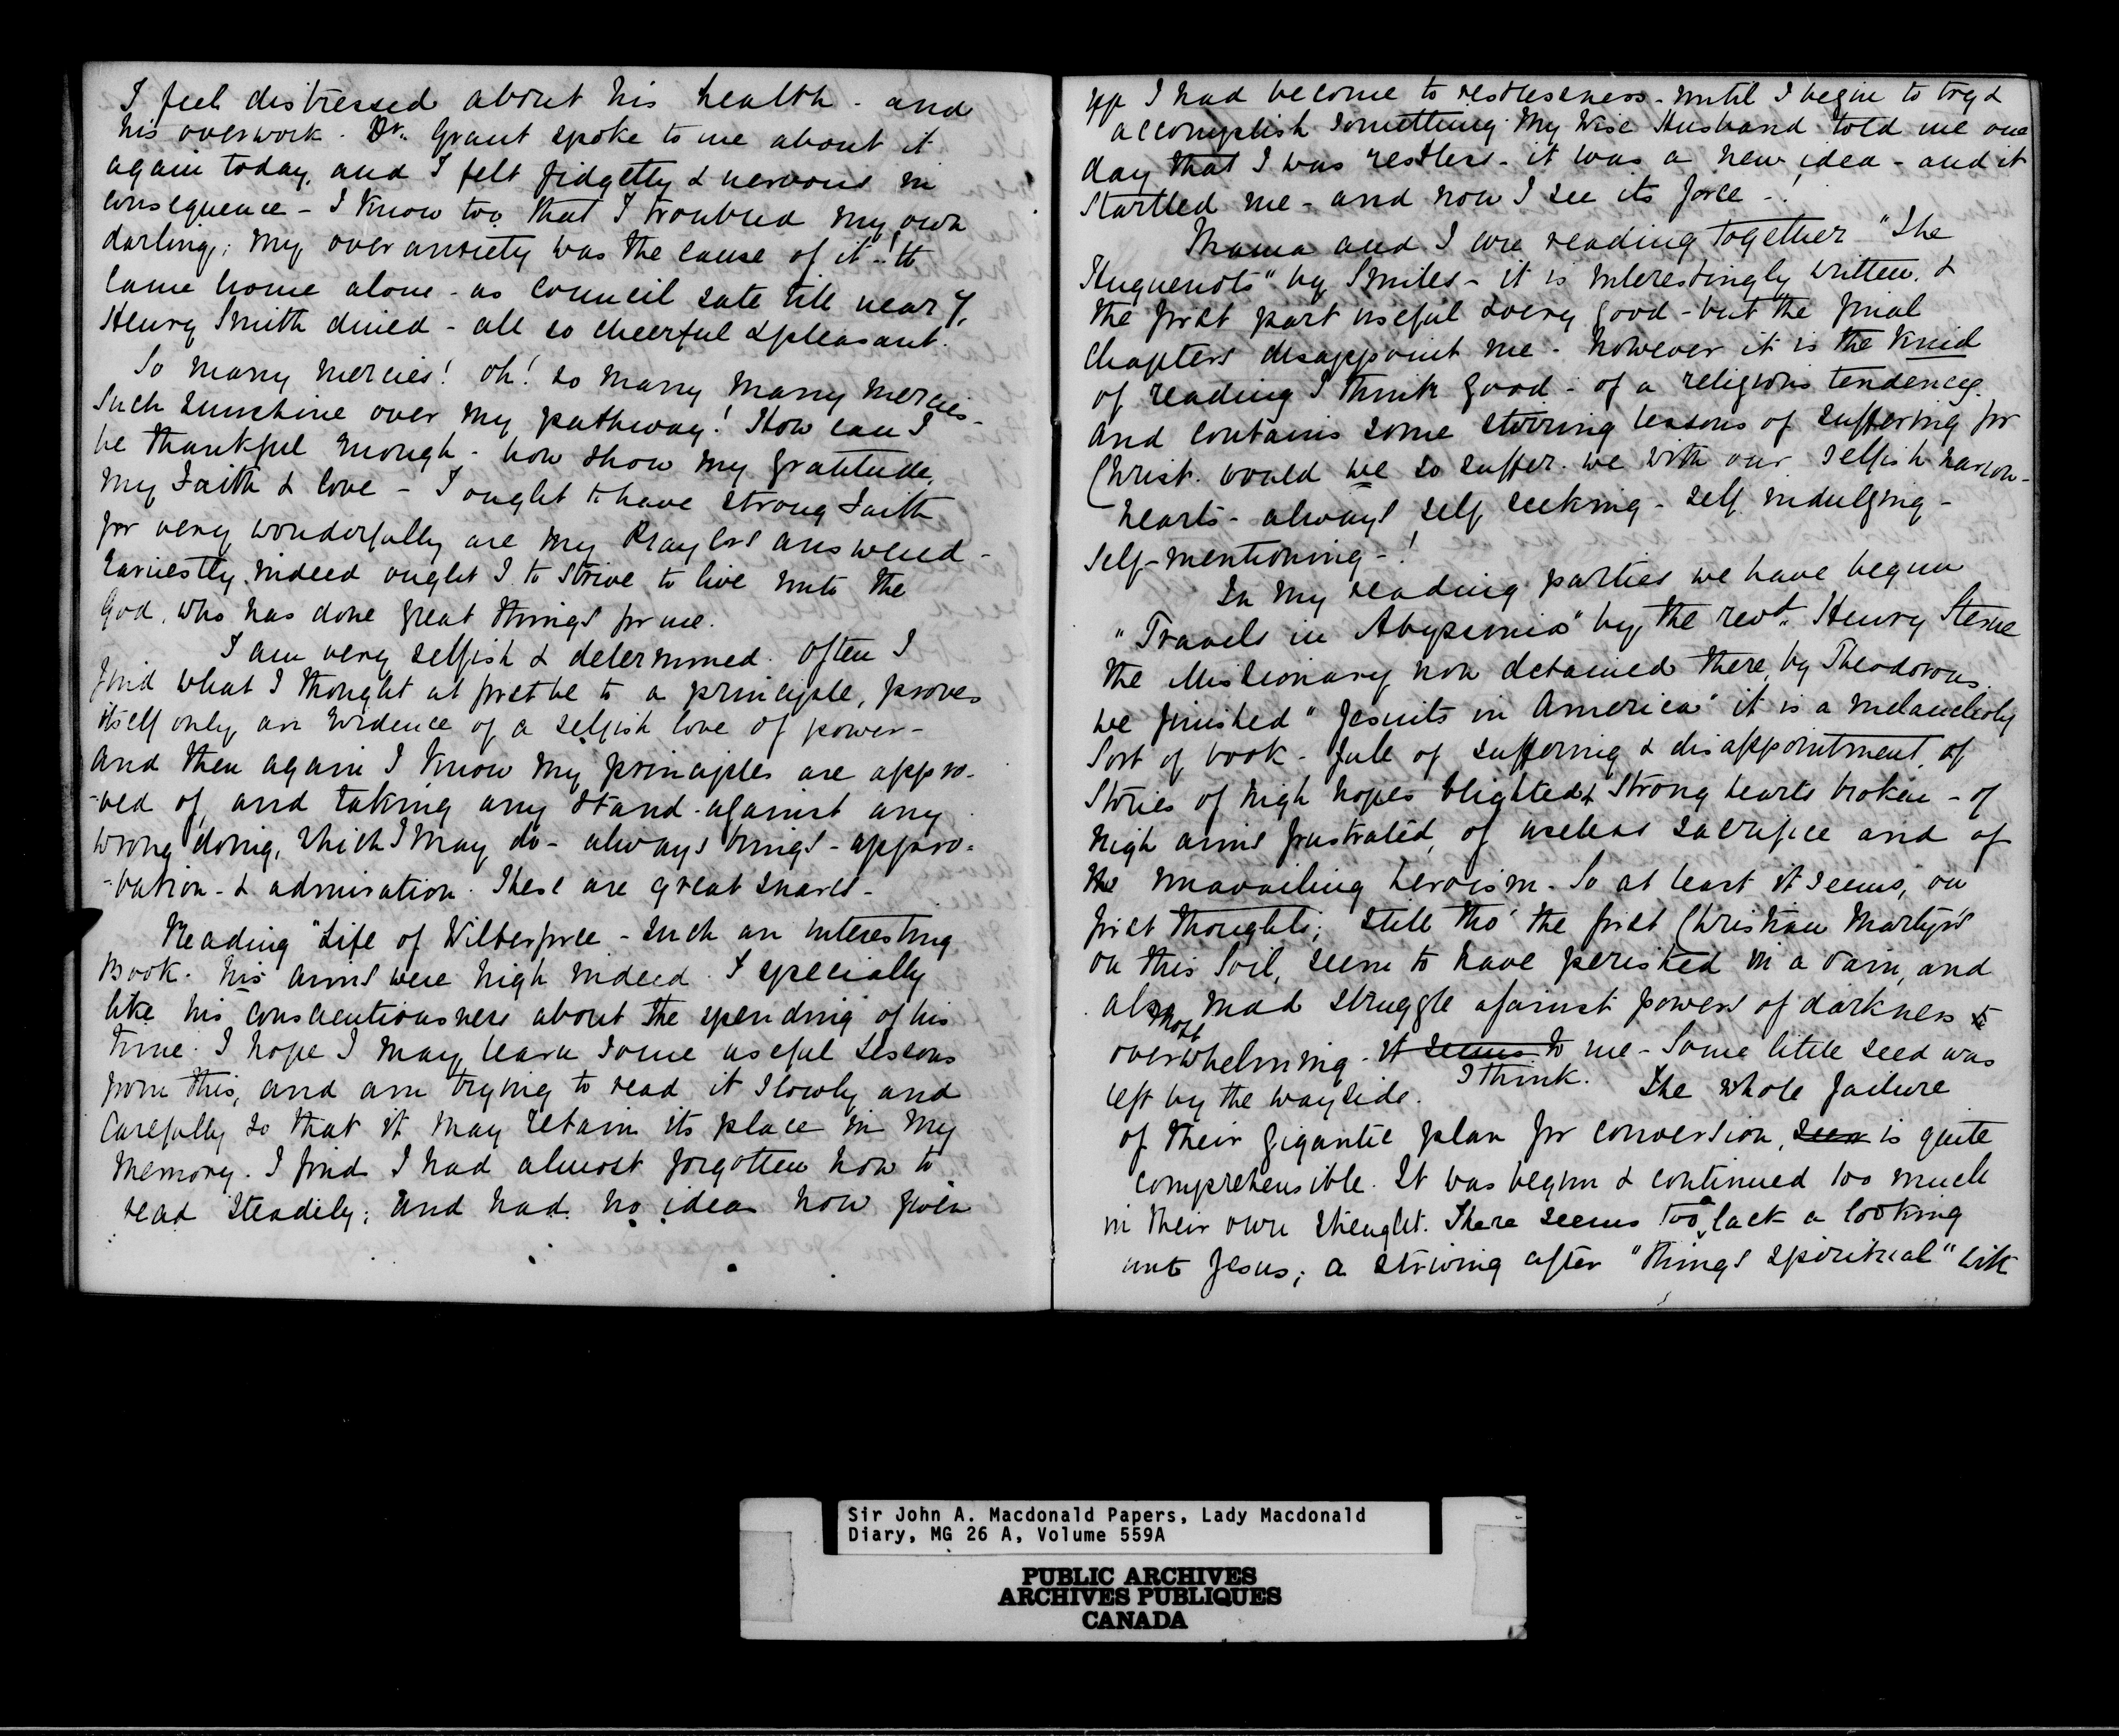 I feel distressed about his health - and
his overwork. Dr. Grant spoke to me about it
again today, and I felt fidgetty & nervous in
consequence - I know too that I troubled my own
darling; my over anxiety was the cause of it -
came home alone - as Council sate till near 7,
Henry Smith dined - all so cheerful & pleasant.
So many mercies! oh! so many many mercies -
Such sunshine over my pathway! How can I
be thankful enough - how show my gratitude,
my Faith & love - I ought to have strong Faith
for very wonderfully are my Prayers answered -
Earnestly indeed ought I to strive to live unto the
God, who has done great things for me.
I am very selfish & determined. Often I
find what I thought at first be to a principle, proves
itself only an evidence of a selfish love of power -
And then again I know my principles are appro-
-ved of, and taking any stand - against any
wrong doing, which I may do - always brings - appro-
-bation - & admiration. These are great snares -
Reading "Life of Wilberforce - such an interesting
Book. his aims were high indeed. I specially
like his conscientiousness about the spending of his
time. I hope I may learn some useful lessons
from this, and am trying to read it slowly and
Carefully so that it may retain its place in my
memory. I find I had almost forgotten how to
read steadily; and had no idea how given
up I had become to restlessness - until I begin to try &
accomplish something. My Wise Husband told me one
day that I was restless - it was a new idea - and it
startled me - and now I see its force - !
Mama and I are reading together "The
Huguenots" by Smiles - it is interestingly written, &
the first part useful & very good - but the final
Chapters disappoint me - however it is the kind
of reading I think good - of a religious tendency.
and contains some stirring lessons of suffering for
Christ. Would we so suffer. we with our selfish narrow-
hearts - always self seeking - self indulging -
self-mentioning - !
In my reading parties we have begun
"Travels in Abyssinia" by the revd. Henry Sterne
the Missionary now detained there, by Theodorus.
we finished "Jesuits in America" it is a melancholy
Sort of book - full of suffering & disappointment, of
Stories of high hopes blighted & strong hearts broken - of
high aims frustrated, of useless sacrifice and of
the unavailing heroism. So at least it seems, on
first thoughts; still tho' the first Christian Martyrs
on this Soil, seem to have perished in a vain, and
also mad struggle against powers of darkness
most
overwhelming - it seems to me - Some little seed was
left by the wayside. I think. The whole failure
of their gigantic plan for conversion, seem is quite
comprehensible. It was begun & continued too much
in their own strenght. There seems too, lack a looking
unto Jesus; a striving after "things spiritual" with
Sir John A. Macdonald Papers, Lady Macdonald
Diary, MG 26 A, Volume 559A
PUBLIC ARCHIVES
ARCHIVES PUBLIQUES
CANADA